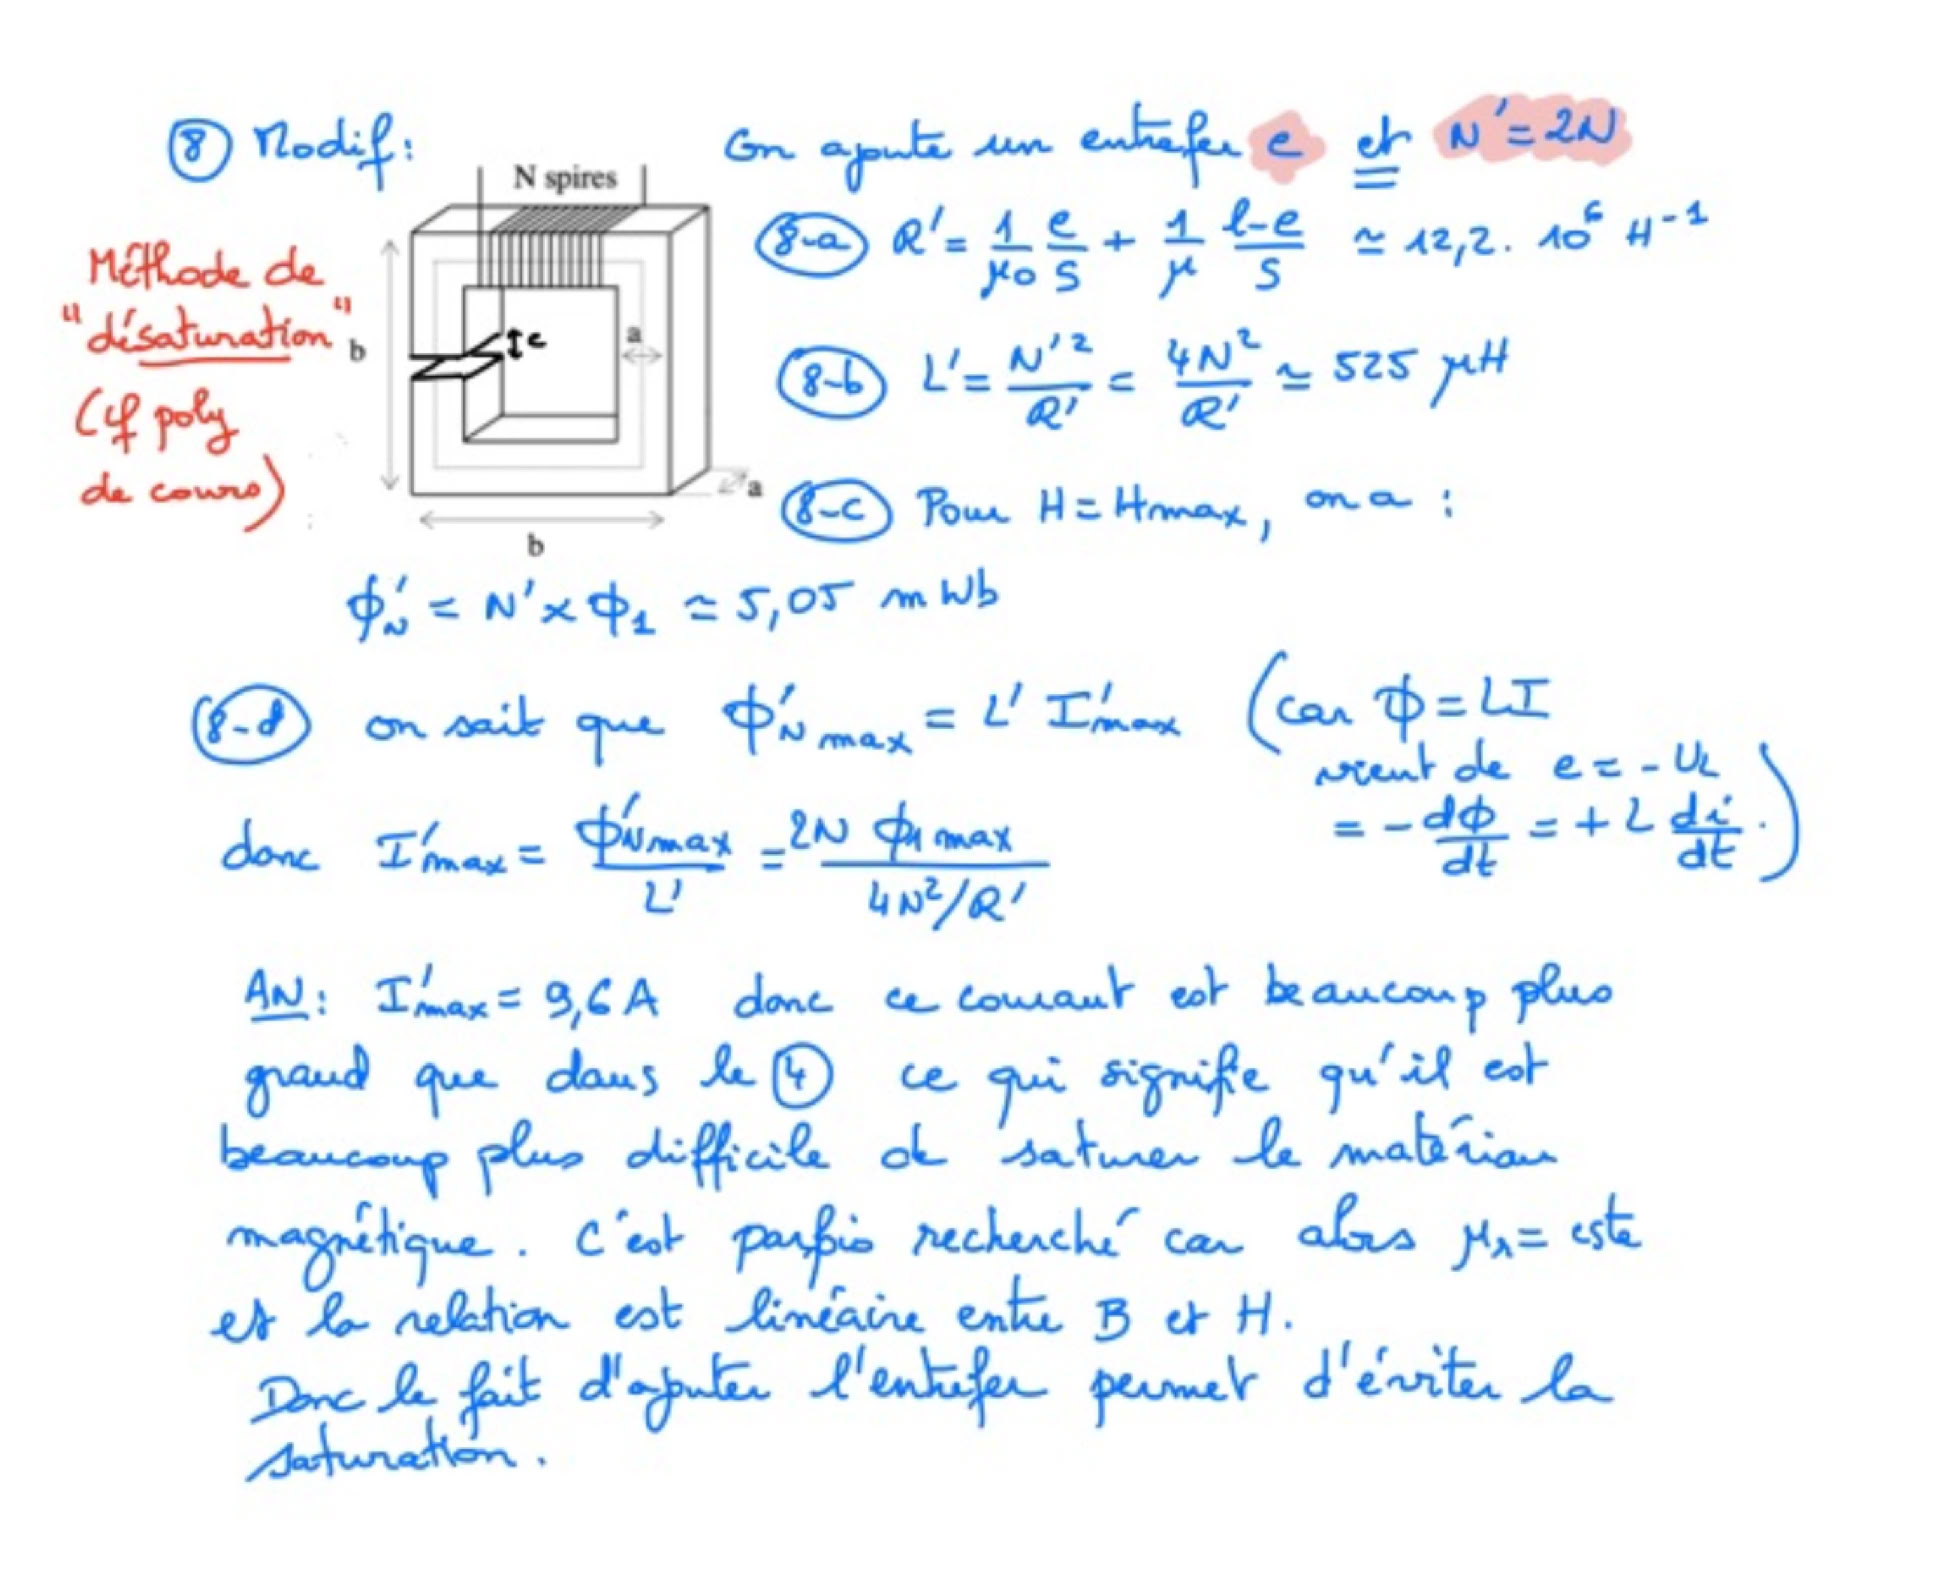 ⑧ Modif :
On ajoute un entrefer e et N' = 2N
N spires
Méthode de
"désaturation"
(cf poly
de cours)
b
e
a
a
b
8-a R' = 1/μ0 e/S + 1/μ (l-e)/S ≃ 12,2. 10^6 H^-1
8-b L' = N'^2/R' = 4N^2/R' ≃ 525 μH
8-c Pour H = Hmax, on a :
ϕ'N = N' × ϕ1 ≃ 5,05 mWb
8-d on sait que ϕ'N max = L' I'max (car ϕ = LI
vient de e = - UL
= - dϕ/dt = + L di/dt.)
donc I'max = ϕ'Nmax/L' = 2N ϕ1 max/(4N^2/R')
AN : I'max = 9,6 A donc ce courant est beaucoup plus
grand que dans le ④ ce qui signifie qu'il est
beaucoup plus difficile de saturer le matériau
magnétique. C'est parfois recherché car alors μr = cste
et la relation est linéaire entre B et H.
Donc le fait d'ajouter l'entrefer permet d'éviter la
saturation.